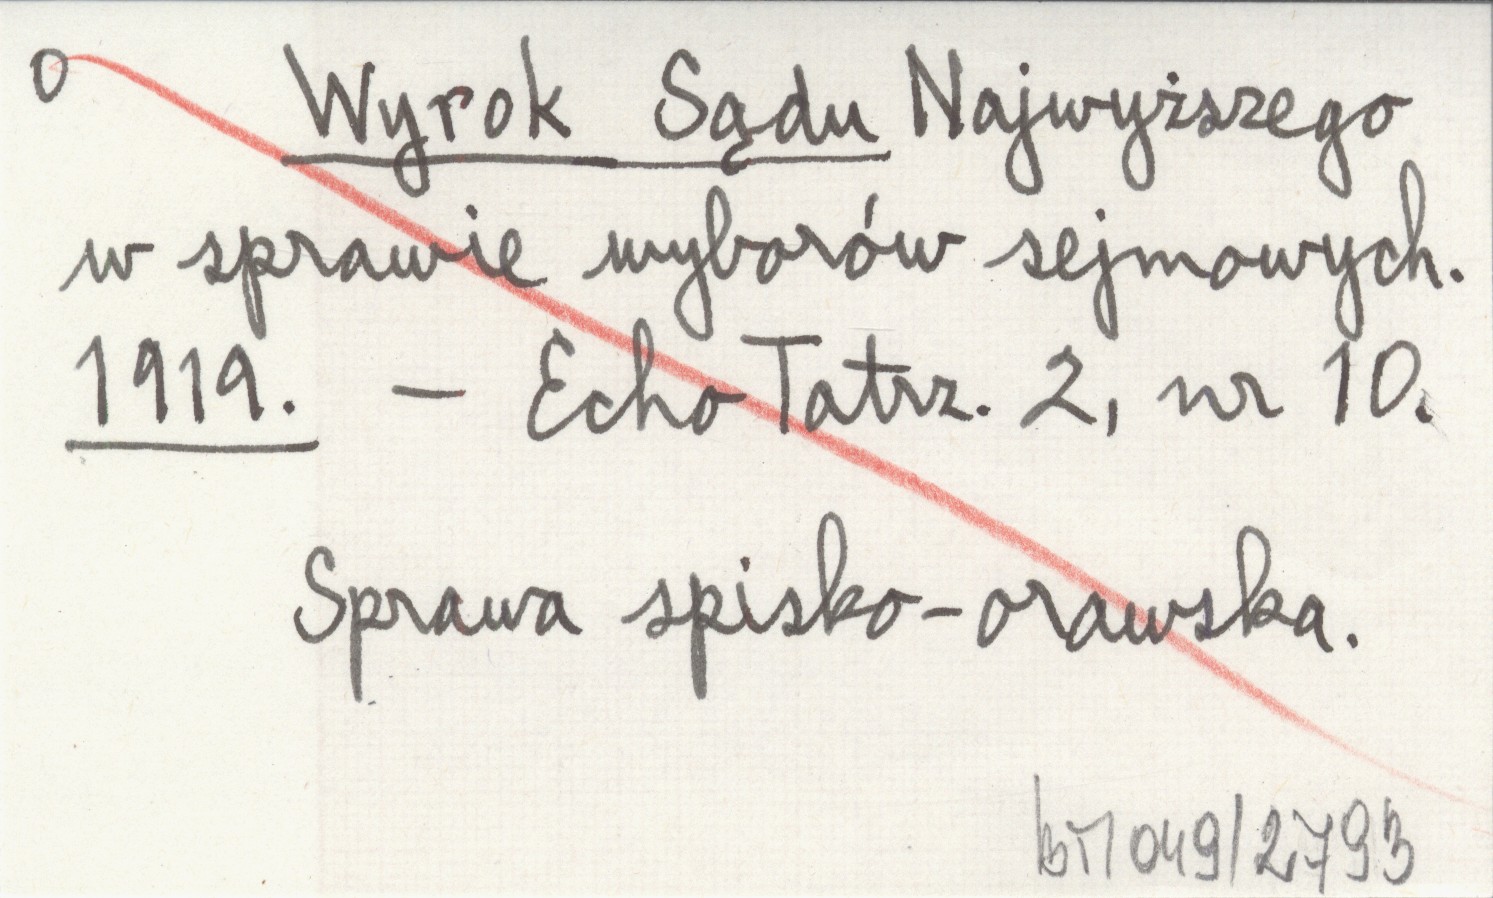 0 Wyrok Sądu Najwyższego
w sprawie wyborów sejmowych.
1919. - Echo Tatrz. 2, nr 10.
Sprawa spisko-orawska.
049/2793